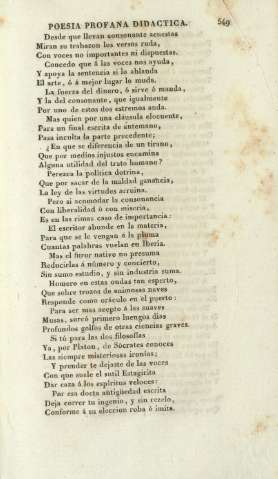 POESIA PROFANA DIDACTICA. 549
Desde que llevan consonante acuestas
Miran su trabazon los versos ruda,
Con voces no importantes ni dispuestas.
Concedo que á las voces nos ayuda,
Y apoya la sentencia si la ablanda
El arte, ó á mejor lugar lo muda.
La fuerza del dinero, ó sirve ó manda,
Y la del consonante, que igualmente
Por uno de estos dos extremos anda.
Mas quien por una cláusula eloquente,
Para un final escrita de antemano,
Pasa inculta la parte precedente;
¿En que se diferencia de un tirano,
Que por medios injustos encamina
Alguna utilidad del trato humano?
Perezca la política dotrina,
Que por sacar de la maldad ganancia,
La ley de las virtudes arruina.
Pero ai acomodar la consonancia
Con liberalidad ó con miseria,
Es en las rimas caso de importancia:
El escritor abunde en la materia,
Para que se le vengan á la pluma
Cuantas palabras vuelan en Iberia.
Mas el furor nativo no presuma
Reducirlas á número y concierto,
Sin sumo estudio, y sin industria suma.
Homero en estas ondas tan esperto,
Que sobre trozos de animosas naves
Responde como oráculo en el puerto:
Para ser mas acepto á las suaves
Musas, surcó primero luengos dias
Profundos golfos de otras ciencias graves.
Si tú para las dos filosofías
Ya, por Platon, de Sócrates conoces
Las siempre misteriosas ironías;
Y prender te dejaste de las voces
Con que suele el sutil Estagirita
Dar caza á los espíritus veloces:
Por esa docta antigüedad escrita
Deja correr tu ingenio, y sin recelo,
Conforme á su eleccion roba ó imita.